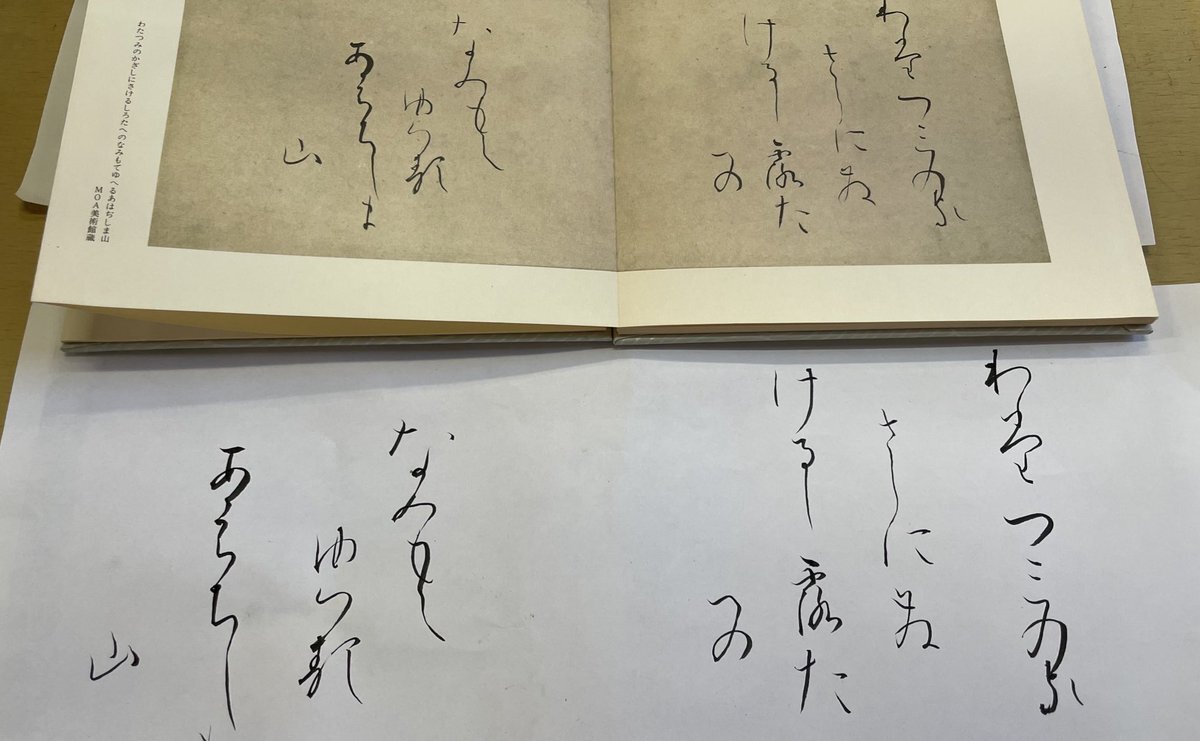 わ堂つみのか
さしにさ
けるし露た
への
なみもて
ゆへ類
あはちしま
山
わたつみのかざしにさけるしろたへのなみもてゆへるあはぢしま山
MOA美術館蔵
わ堂つみのか
さしにさ
けるし露た
への
なみもて
ゆへ類
あはちし
山